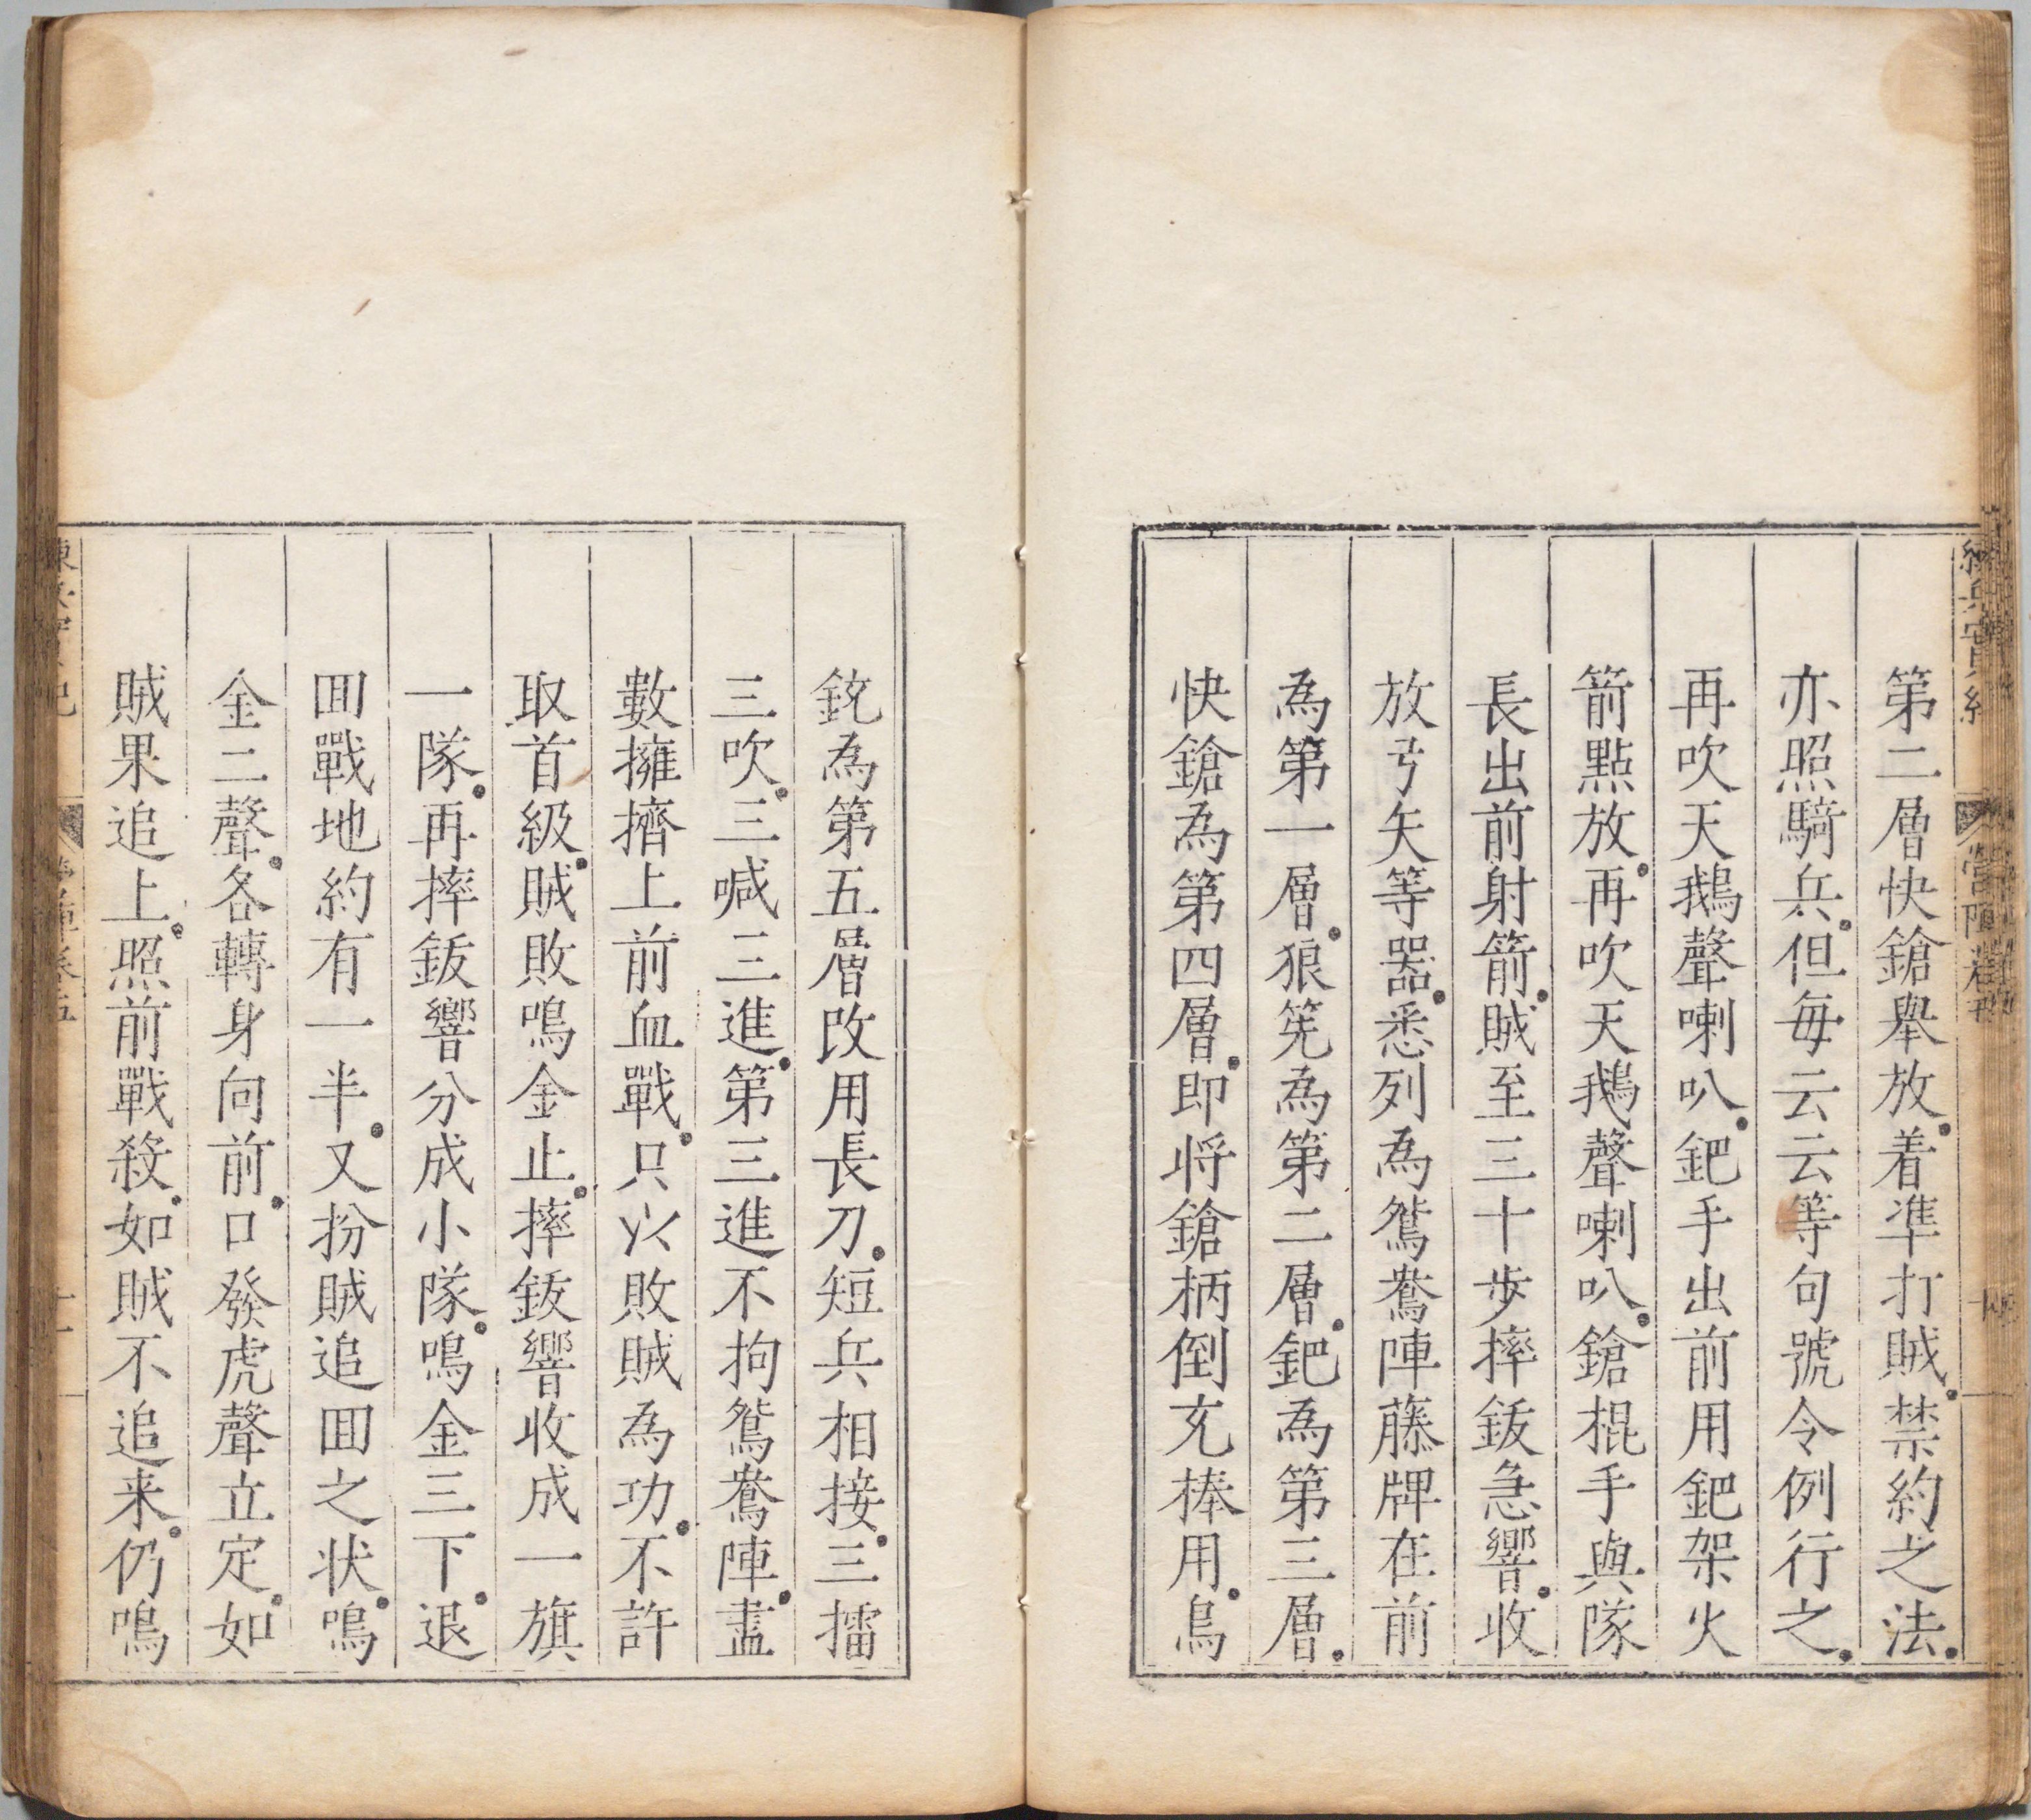 第二層快鎗舉放着準打賊禁約之法
亦照騎兵但每云云等句號令例行之
再吹天鵝聲喇叭鈀手出前用鈀架火
箭點放再吹天鵝聲喇叭鎗棍手與隊
長出前射箭賊至三十步摔鈸急響收
放弓矢等器悉列為鴛鴦陣藤牌在前
為第一層狼筅為第二層鈀為第三層
快鎗為第四層即将鎗柄倒充棒用鳥
銃為第五層改用長刀短兵相接三擂
三吹三喊三進第三進不拘鴛鴦陣盡
數擁擠上前血戰只以敗賊為功不許
取首級賊敗鳴金止摔鈸響收成一旗
一隊再摔鈸響分成小隊鳴金三下退
囬戰地約有一半又扮賊追囬之状鳴
金二聲各轉身向前口發虎聲立定如
賊果追上照前戰殺如賊不追来仍鳴